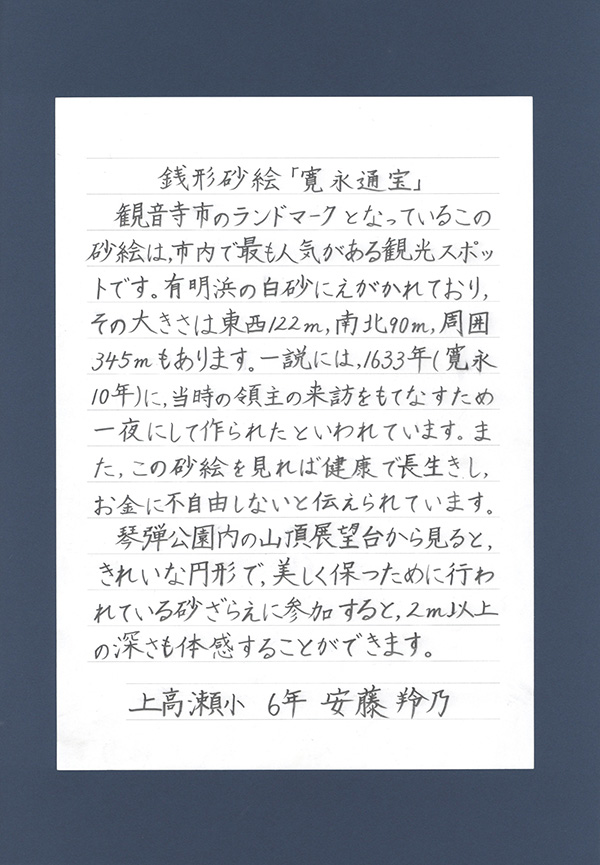 銭形砂絵「寛永通宝」
観音寺市のランドマークとなっているこの
砂絵は,市内で最も人気がある観光スポッ
トです。有明浜の白砂にえがかれており,
その大きさは東西122m,南北90m,周囲
345mもあります。一説には,1633年(寛永
10年)に,当時の領主の来訪をもてなすため
一夜にして作られたといわれています。ま
た,この砂絵を見れば健康で長生きし,
お金に不自由しないと伝えられています。
琴弾公園内の山頂展望台から見ると,
きれいな円形で,美しく保つために行わ
れている砂ざらえに参加すると,2m以上
の深さも体感することができます。
上高瀬小 6年 安藤羚乃